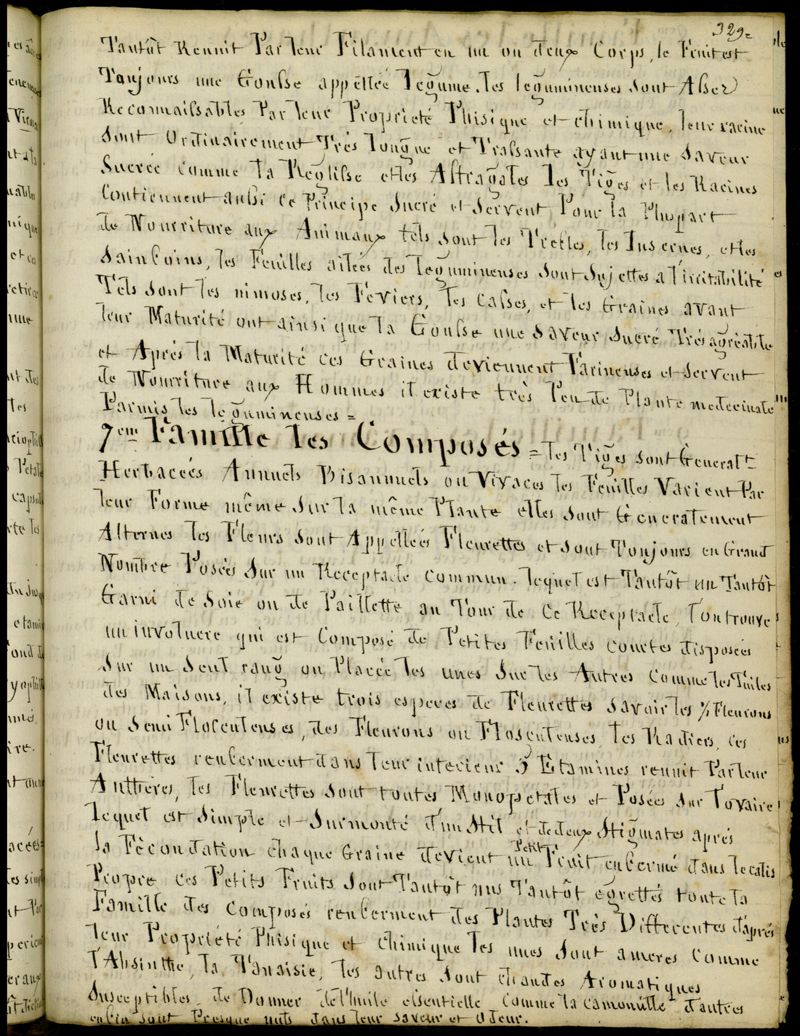 329=
Tantôt Reunit Par leur Filament en un ou deux Corps, le Fruit est
Toujours une Gousse appellée legume. les leguminenses sont Assez
Reconnaissables Par leur Proprieté Phisique et chimique, leur racine
sont Ordinairement Très longue et Trassante ayant une Saveur
Sucrée comme la Reglisse et les Astragales les Tiges et les Racines
Contiennent aussi ce Principe Sucré et Servent Pour la Plupart
de Nourriture aux Animaux tels sont les Trefles, les luserues, et les
Sainfoins, les Feuilles ailées des leguminenses sont Sujettes a l'irritabilité
Tels sont les mimoses, les Feviers, les Casses, et les Graines avant
leur Maturité ont ainsi que la Gousse une Saveur Sucré Très agréable
et Après la Maturité ces Graines deviennent Farineuses et Servent
de Nourriture aux Hommes il existe très Peu de Plante medecinale
Parmis les leguminenses =
7em Famille les Composés = les Tiges sont Generalt
Herbacées Annuels Bisannuels ou Vivaces les Feuilles Varient Par
leur Forme même sur la même Plante elles sont Generalement
Alternes les Fleurs sont Appellées Fleurettes et sont Toujours en Grand
Nombre Posées sur un Receptacle commun. lequel est Tantôt nu Tantôt
Garni de Soie ou de Paillette au Tour de ce Receptacle, l'on trouve
un involucre qui est Composé de Petites Feuilles courtes disposées
sur un seul rang ou Placée les unes Sur les Autres comme les Tuiles
des Maisons, il existe trois especes de Fleurettes savoir les ½ Fleurons
ou Semi Flosculenses, des Fleurons ou Flosculenses, les Radiers, ces
Fleurettes renferment dans leur interieur 5 Etamines reunit Par leur
Anthères, les Fleurettes sont toutes Monopetales et Posées sur l'ovaire
lequel est Simple et Surmonté d'un Stil et de deux Stigmates après
la Fécondation chaque Graine devient un Petit Fruit enfermé dans le calis
Propre ces Petits Fruits sont Tantôt nus Tantôt egrettés toute la
Famille des Composés renferment des Plantes Très Differentes d'après
leur Propriété Phisique et chimique les unes sont ameres comme
l'Absinthe, la Tanaisie, les autres sont chaudes Aromatiques
Susceptibles de Donner de l'huile essentielle comme la camomille d'autres
enfin sont Presque nuls dans leur saveur et Odeur.